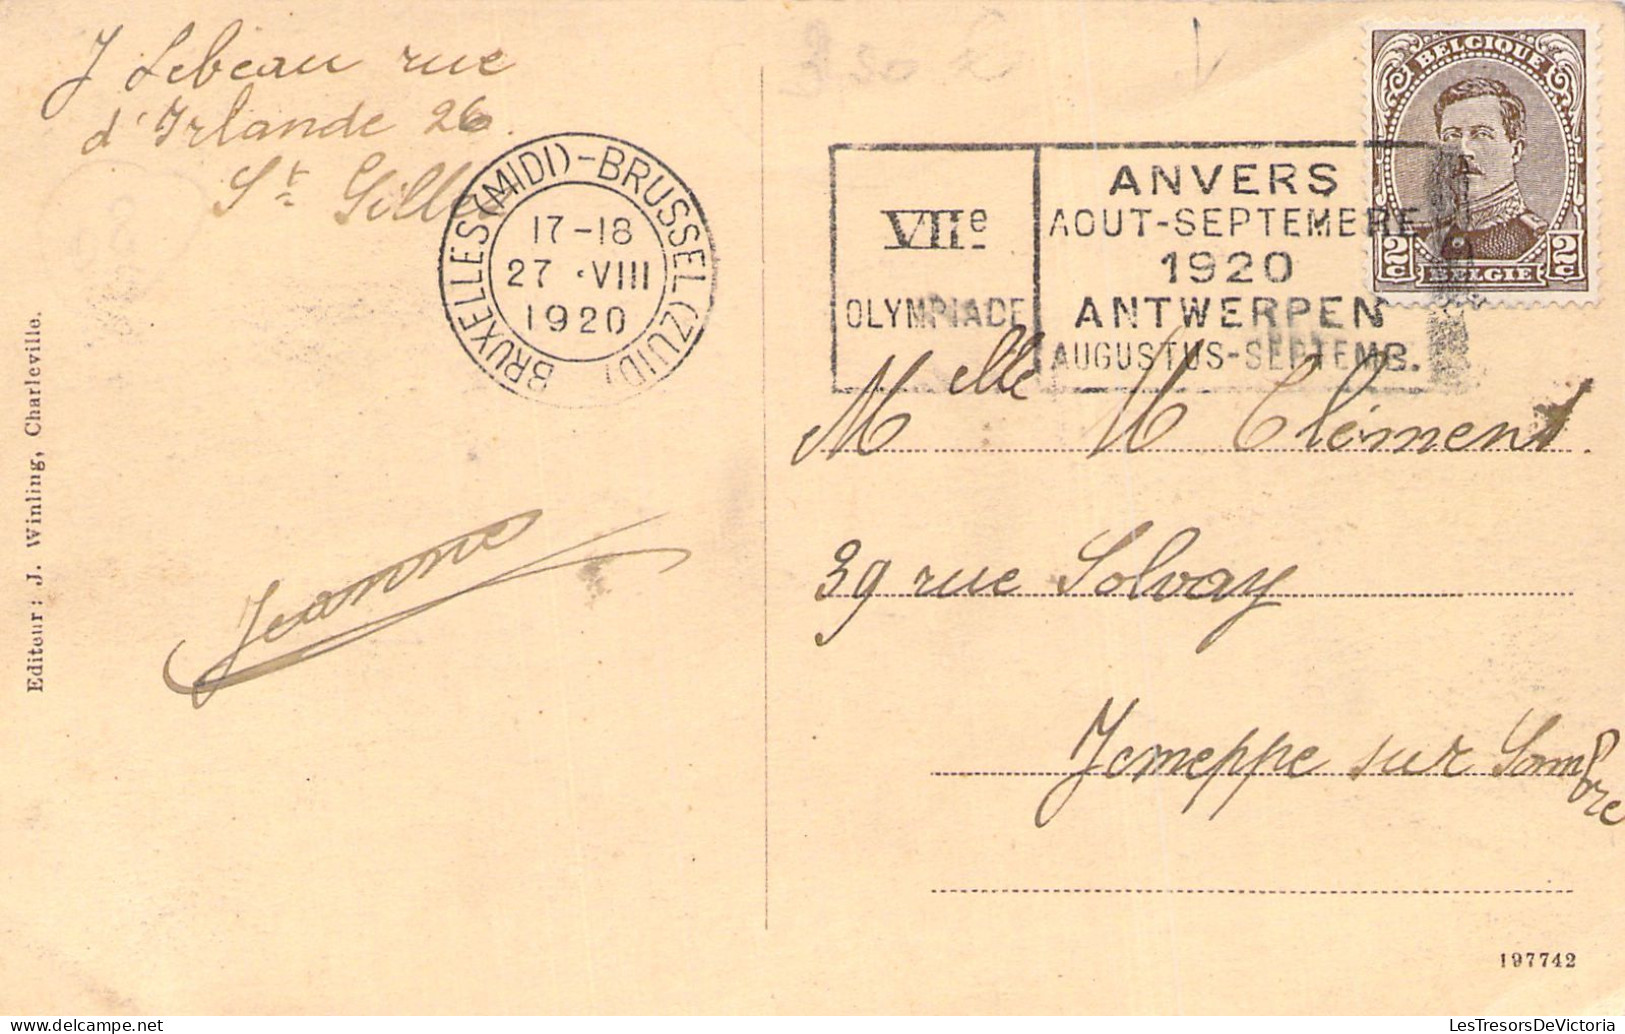 J Lebeau rue
d'Irlande 26.
St Gilles
BRUXELLES (MIDI) - BRUSSEL (ZUID)
17-18
27 · VIII
1920
VIIe
OLYMPIADE
ANVERS
AOUT-SEPTEMBRE
1920
ANTWERPEN
AUGUSTUS-SEPTEMB.
BELGIQUE
2c 2c
BELGIË
Melle M Clément.
39 rue Solvay
Jemeppe sur Sambre
Jeanne
Editeur : J. Winling, Charleville.
197742
LesTresorsDeVictoria
www.delcampe.net